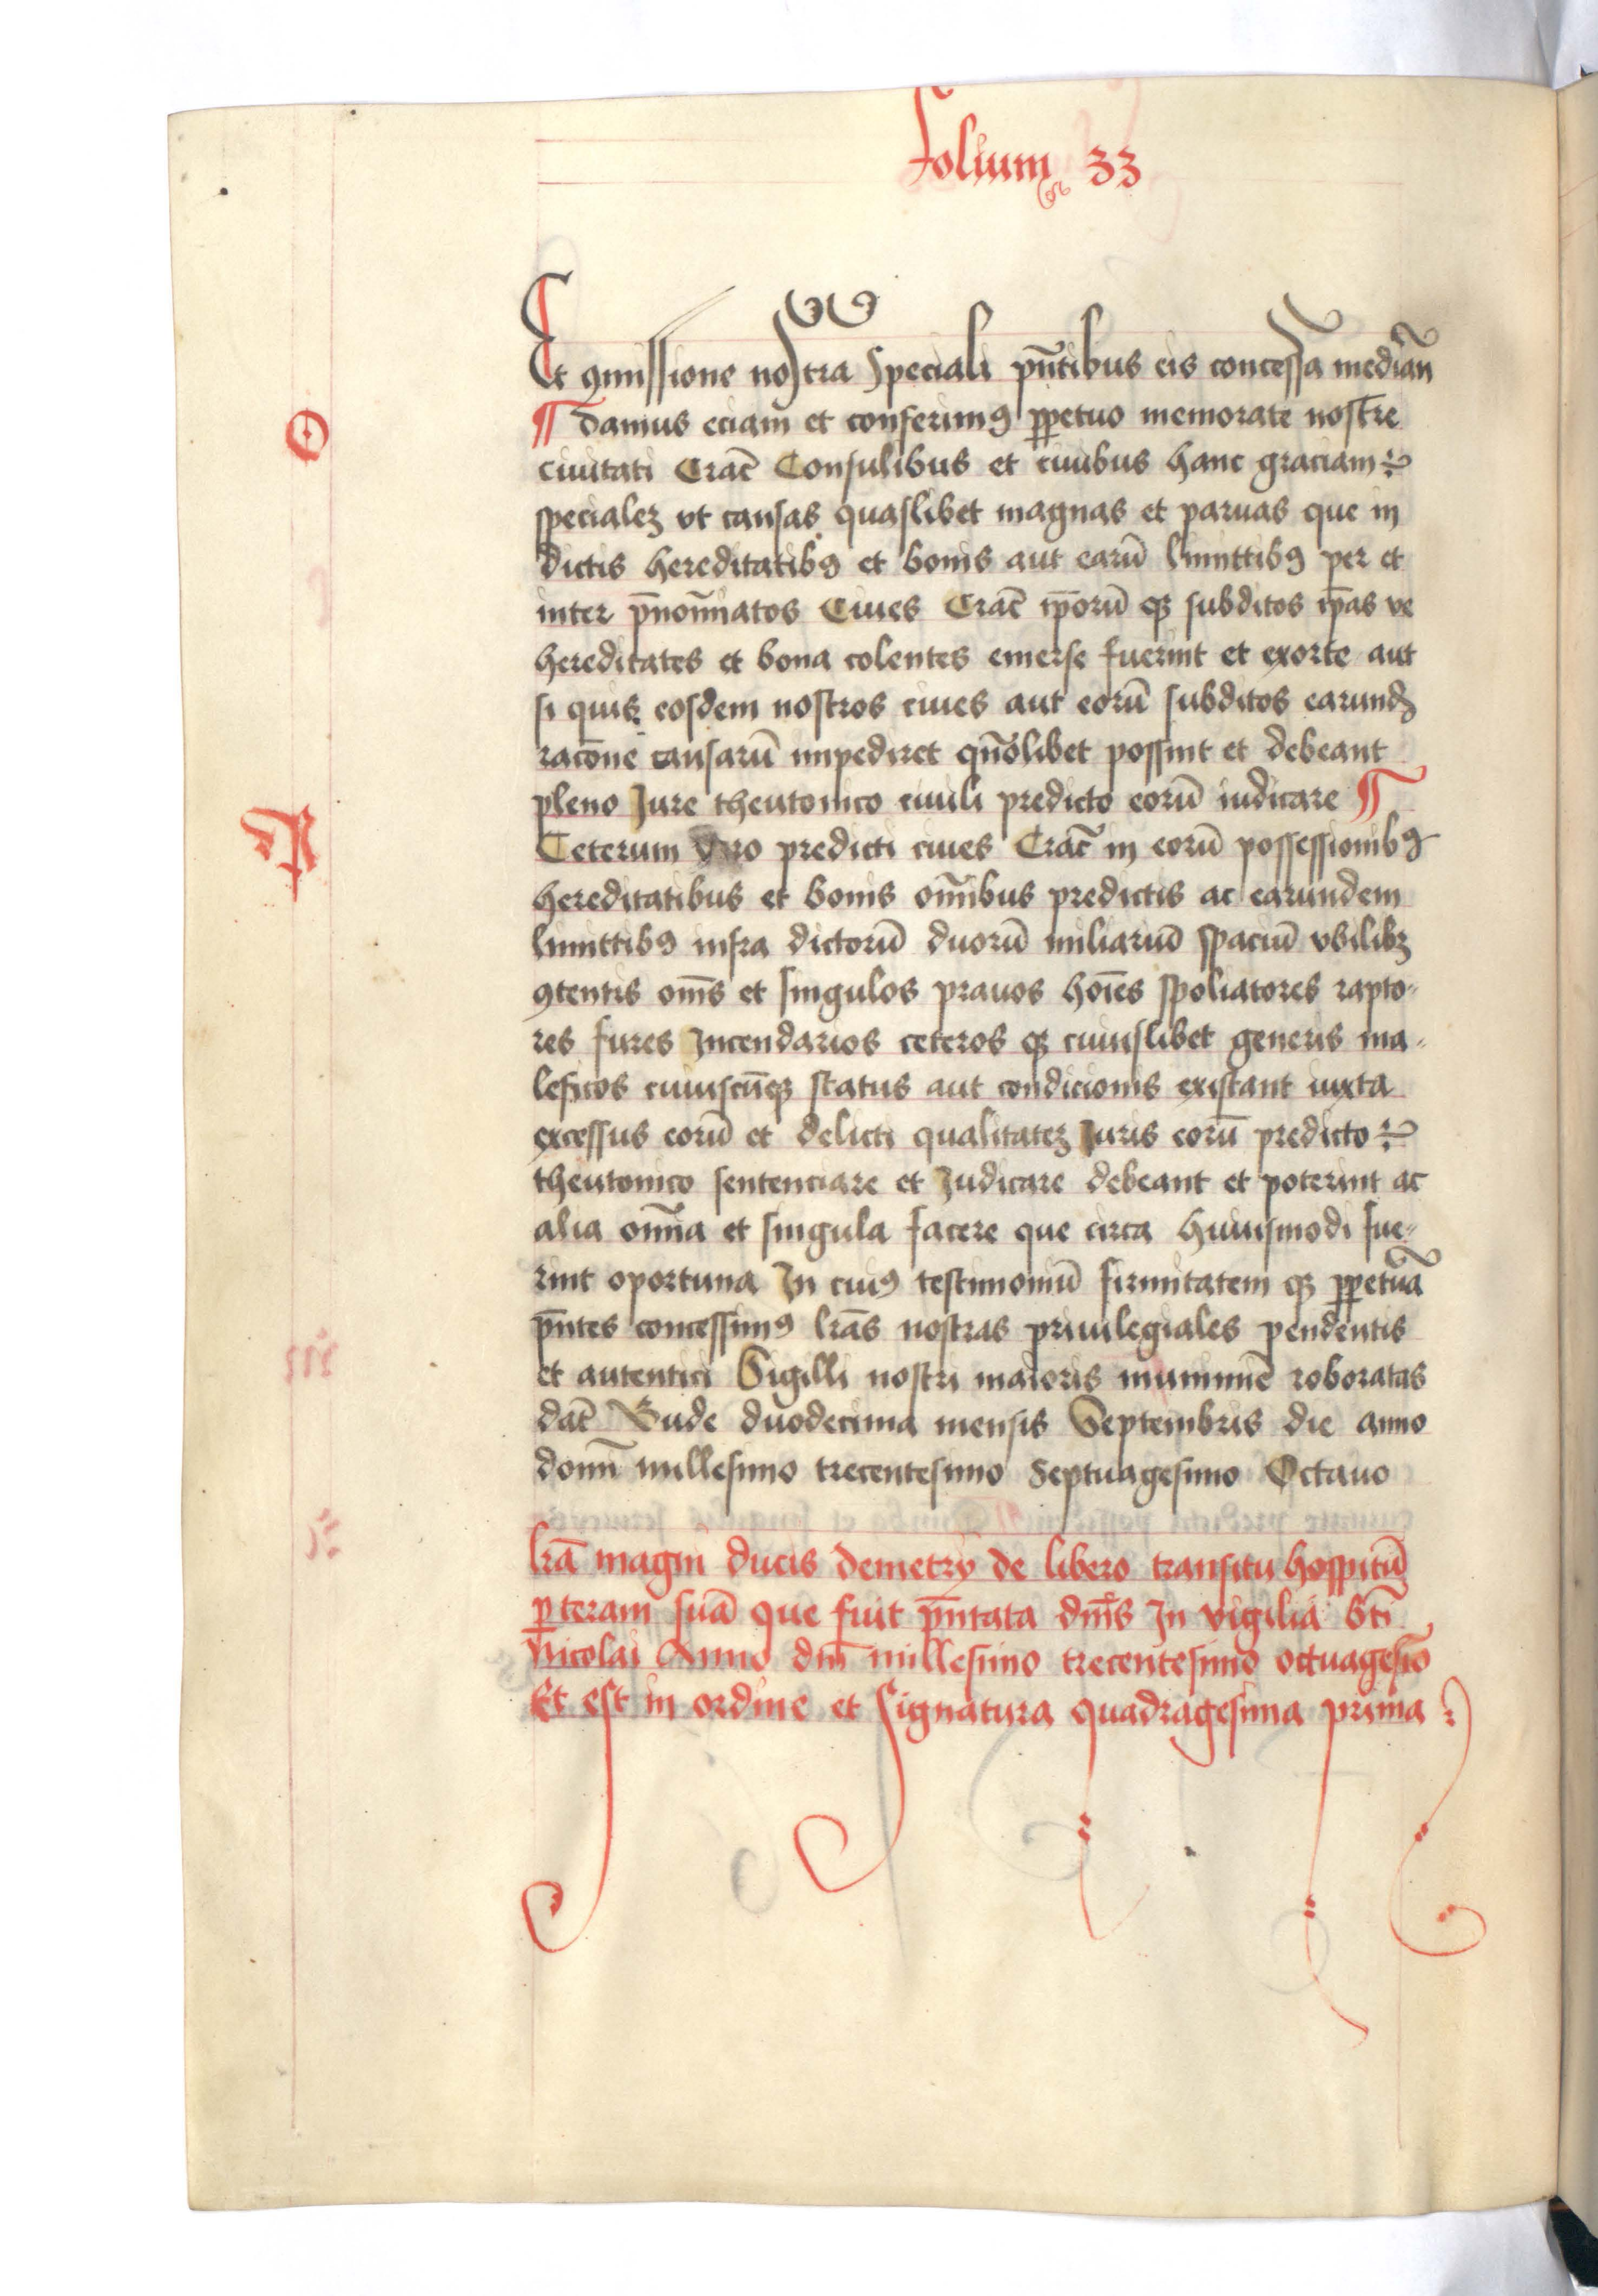 folium 33
Et ꝯmissione nostra Speciali pn̄tibus eis concessa median̄
¶ Damus eciam et conferimꝰ ꝑpetuo memorate nostre
O
ciuitati Crac̄ Consulibus et ciuibus hanc graciam
specialeꝫ vt causas quaslibet magnas et paruas que in
dictis hereditatibꝰ et bonis aut earū limittibꝰ per et
inter p̄noīatos Ciues Crac̄ ip̄orū qꝫ subditos ip̄as ve
hereditates et bona colentes emerse fuerint et exorte aut
si quis eosdem nostros ciues aut eorū subditos earundꝫ
racōne causarū impediret quōlibet possint et debeant
pleno Jure theutonico ciuili predicto eorū iudicare ¶
P
Ceterum vero predicti ciues Crac̄ in eorū possessionibꝰ
hereditatibus et bonis om̄ibus predictis ac earundem
limittibꝰ infra dictorū duorū miliariū spaciū vbilibꝫ
ꝯtentis om̄s et singulos prauos hoīes spoliatores rapto-
res fures Incendarios ceteros qꝫ cuiuslibet generis ma-
leficos cuiuscūqꝫ status aut condicionis existant iuxta
excessus eorū et delicti qualitateꝫ Juris eorū predicto
theutonico sentenciare et Judicare debeant et poterint ac
alia om̄ia et singula facere que circa huiusmodi fue-
rint oportuna In cuiꝰ testimoniū firmitatem qꝫ ꝑpetuā
pn̄tes concessimꝰ lr̄as nostras priuilegiales pendentis
et autentici Sigilli nostri maioris munimie roboratas
dat̄ Bude duodecima mensis Septembris die anno
domī millesimo trecentesimo Septuagesimo Octauo
lr̄a magni ducis demetrÿ de libero transitu hospitū
ꝑ teram suā que fuit pn̄tata dn̄is In vigilia Sti
Nicolai Anno dn̄i millesimo trecentesimo octuagesīo
Et est in ordine et Signatura quadragesima prima